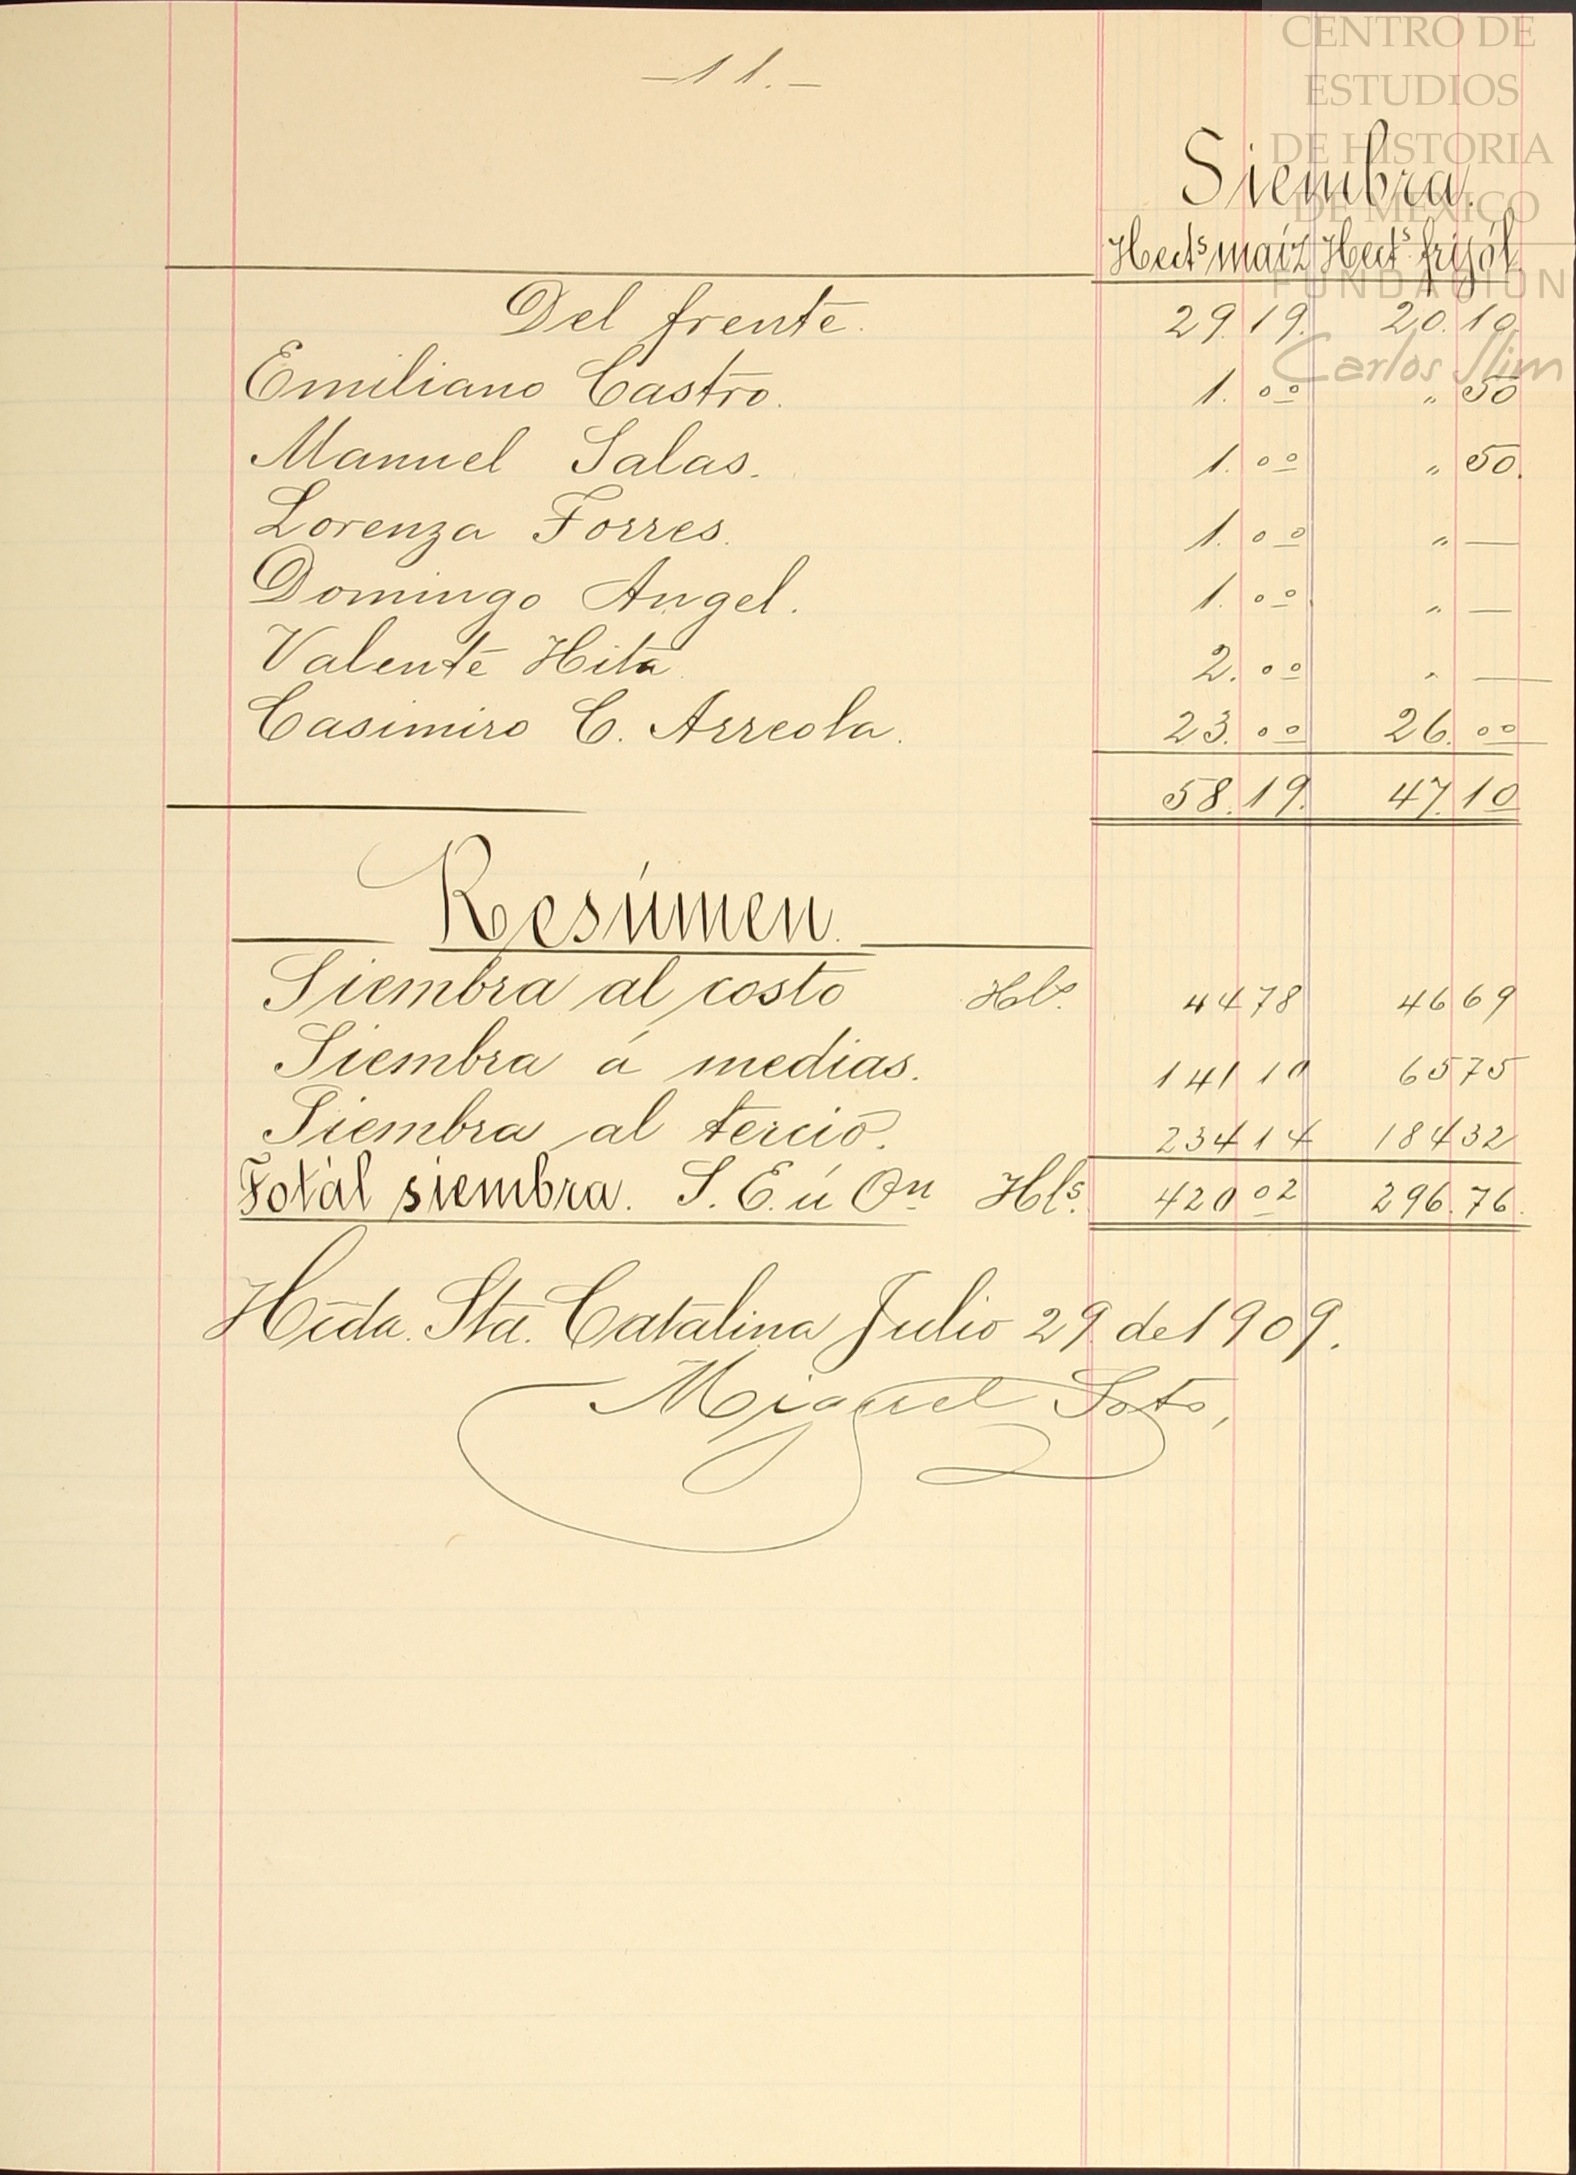 —11.—
CENTRO DE
ESTUDIOS
DE HISTORIA
DE MEXICO
FUNDACION
Carlos Slim
Siembra.
Hects maíz Hects frijól
Del frente. 29.19. 20.10
Emiliano Castro. 1.00 " 50
Manuel Salas. 1.00 " 50.
Lorenza Torres. 1.00 " —
Domingo Angel. 1.00 " —
Valente Hita 2.00 " —
Casimiro C. Arreola. 23.00 26.00
58.19. 47.10
Resúmen.
Siembra al costo Hls. 4478 4669
Siembra á medias. 14110 6575
Siembra al tercio. 23414 18432
Totál siembra. S. E. ú On Hls. 42002 296.76.
Hcda. Sta. Catalina Julio 29 de 1909.
Miguel Soto,